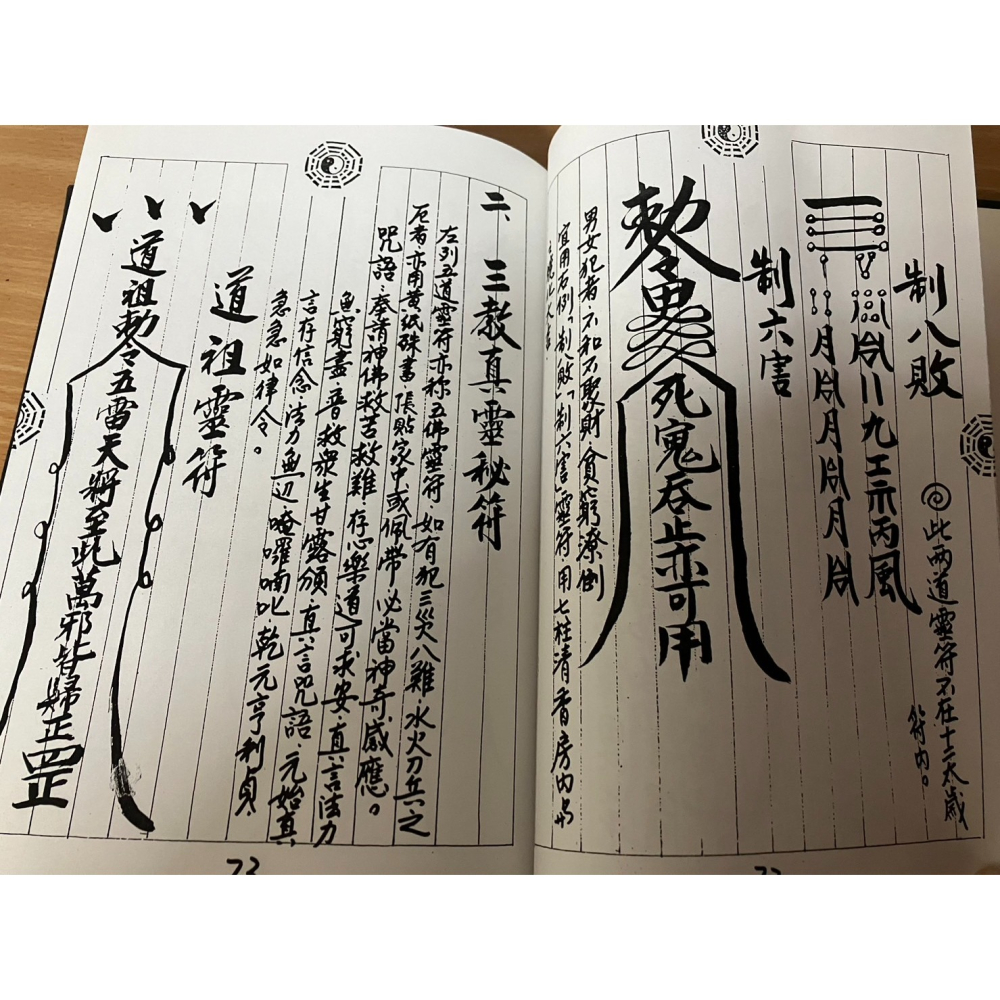 制八敗
此两道靈符不在十二太歲
符内。
制六害
勅令
死鬼吞止亦可用
男女犯者、不和不聚財貧窮潦倒
宜用右例「制八敗」「制六害」靈符用七柱清香房内
二、三教真靈秘符
左列五道靈符亦称五佛靈符、如有犯三災八難、水火刀兵之
厄者、亦用黃紙硃書、張貼家中或佩帶、必當神奇感應。
咒語：奉請神佛救苦救難、存心樂道可求安、真言法力
魚窮盡、音救衆生甘露頒、真言咒語、元始真
言存信念、法力魚辺、唵囉喃叱、乾元亨利貞
急急如律令。
道祖靈符
道祖勅令五雷天將至此萬邪皆歸正罡
73